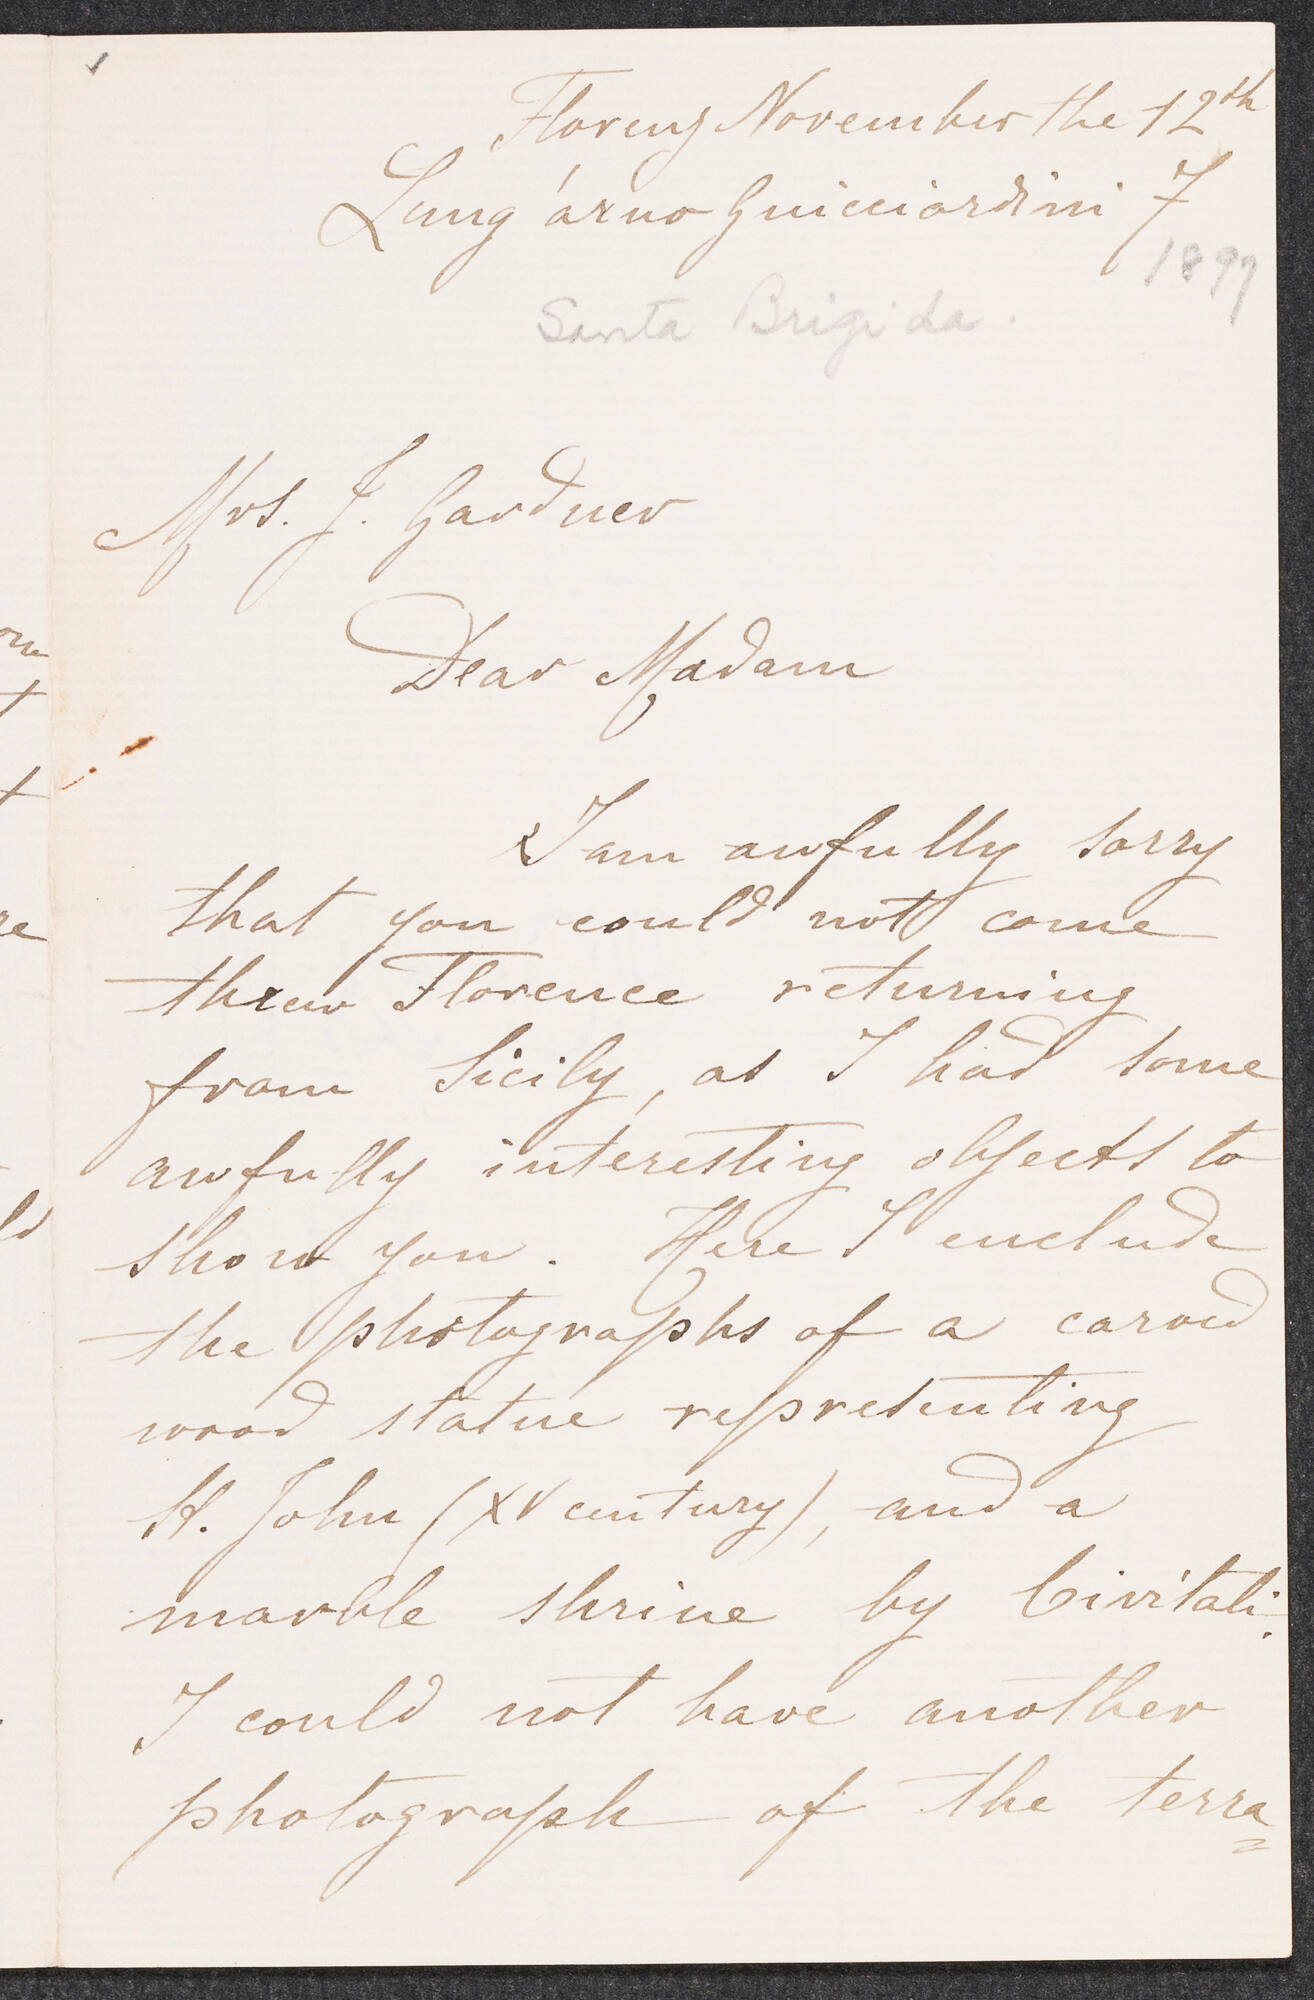 Florenz November the 12th
Lung'arno Guicciardini 7
1897
Santa Brigida.
Mrs. J. Gardner
Dear Madam
I am awfully sorry
that you could not come
threw Florence returning
from Sicily, as I had some
awfully interesting objects to
show you. Here I enclude
the photographs of a carved
wood statue representing
St. John (XV century), and a
marble shrine by Civitali.
I could not have another
photograph of the terra=